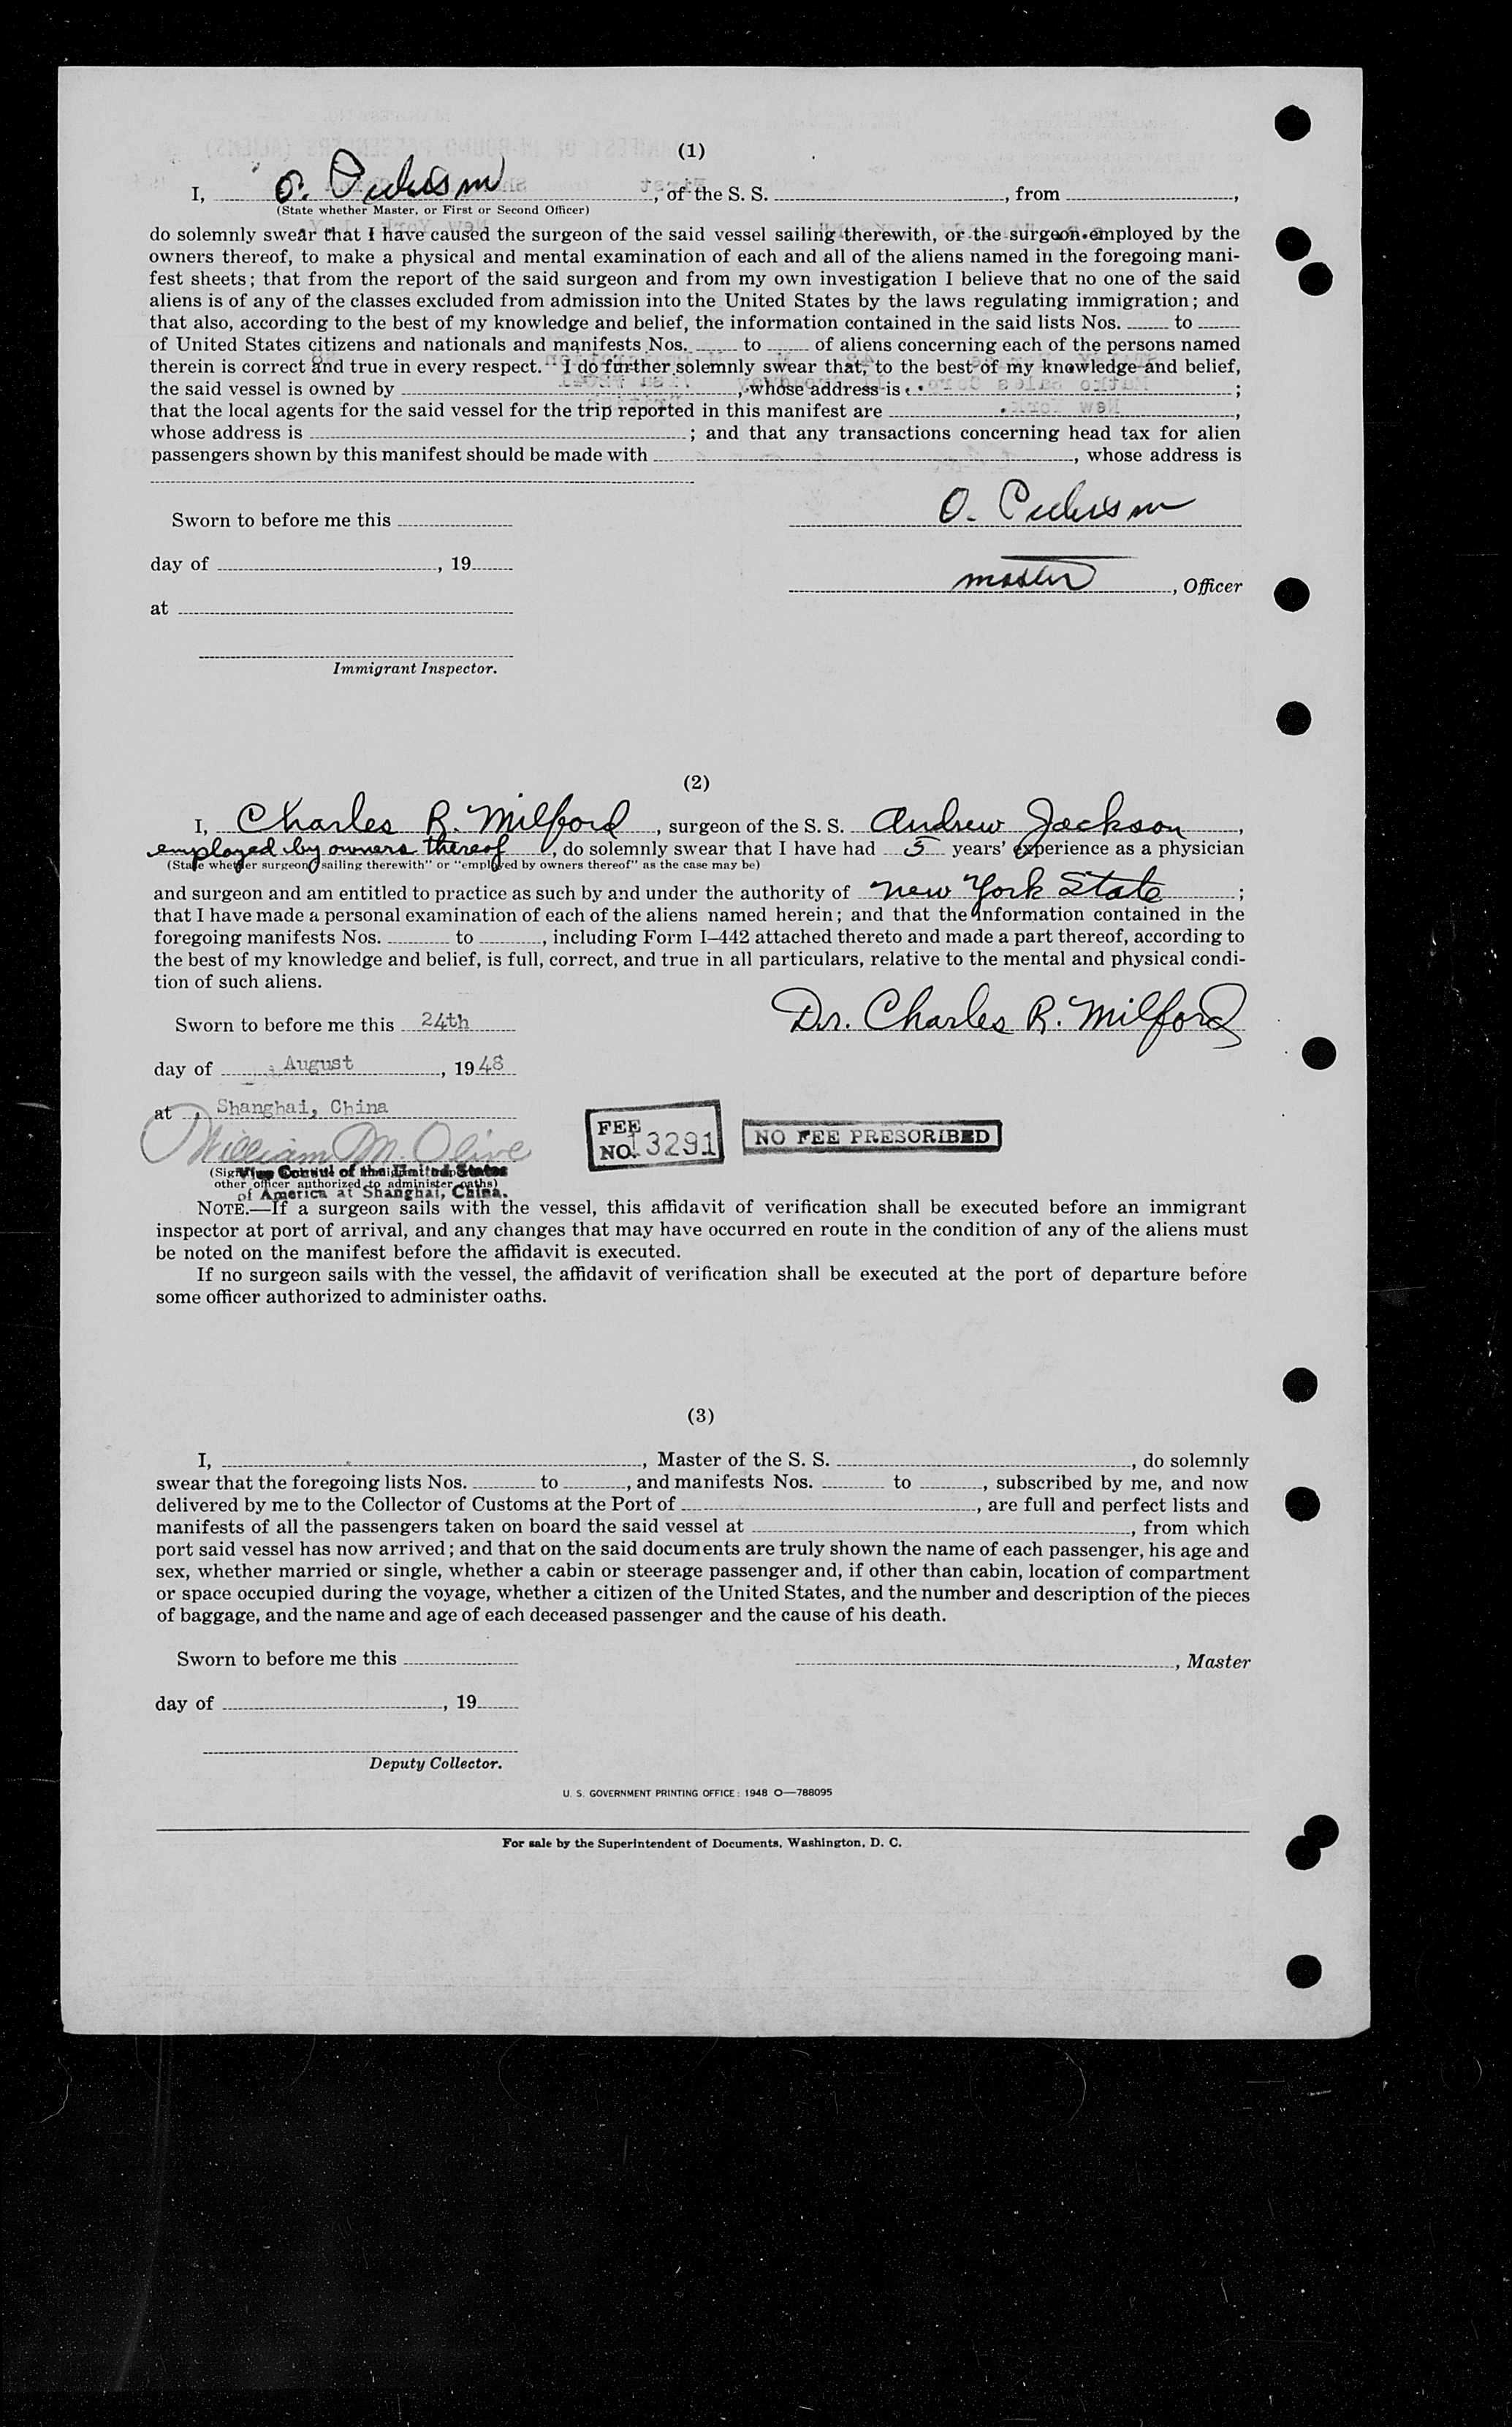 (1)
I, O. Pedersen, of the S. S. , from ,
(State whether Master, or First or Second Officer)
do solemnly swear that I have caused the surgeon of the said vessel sailing therewith, or the surgeon employed by the
owners thereof, to make a physical and mental examination of each and all of the aliens named in the foregoing mani-
fest sheets; that from the report of the said surgeon and from my own investigation I believe that no one of the said
aliens is of any of the classes excluded from admission into the United States by the laws regulating immigration; and
that also, according to the best of my knowledge and belief, the information contained in the said lists Nos. to
of United States citizens and nationals and manifests Nos. to of aliens concerning each of the persons named
therein is correct and true in every respect. I do further solemnly swear that, to the best of my knowledge and belief,
the said vessel is owned by , whose address is ;
that the local agents for the said vessel for the trip reported in this manifest are ,
whose address is ; and that any transactions concerning head tax for alien
passengers shown by this manifest should be made with , whose address is
O. Pedersen
Sworn to before me this
day of , 19
master, Officer
at
Immigrant Inspector.
(2)
I, Charles R. Milford, surgeon of the S. S. Andrew Jackson,
employed by owners thereof, do solemnly swear that I have had 5 years' experience as a physician
(State whether surgeon "sailing therewith" or "employed by owners thereof" as the case may be)
and surgeon and am entitled to practice as such by and under the authority of New York State;
that I have made a personal examination of each of the aliens named herein; and that the information contained in the
foregoing manifests Nos. to , including Form I-442 attached thereto and made a part thereof, according to
the best of my knowledge and belief, is full, correct, and true in all particulars, relative to the mental and physical condi-
tion of such aliens.
Dr. Charles R. Milford
Sworn to before me this 24th
day of August, 1948
at Shanghai, China
William M. Olive
FEE NO. 13291
NO FEE PRESCRIBED
Vice Consul of the United States
other officer authorized to administer oaths)
of America at Shanghai, China.
NOTE.—If a surgeon sails with the vessel, this affidavit of verification shall be executed before an immigrant
inspector at port of arrival, and any changes that may have occurred en route in the condition of any of the aliens must
be noted on the manifest before the affidavit is executed.
If no surgeon sails with the vessel, the affidavit of verification shall be executed at the port of departure before
some officer authorized to administer oaths.
(3)
I, , Master of the S. S. , do solemnly
swear that the foregoing lists Nos. to , and manifests Nos. to , subscribed by me, and now
delivered by me to the Collector of Customs at the Port of , are full and perfect lists and
manifests of all the passengers taken on board the said vessel at , from which
port said vessel has now arrived; and that on the said documents are truly shown the name of each passenger, his age and
sex, whether married or single, whether a cabin or steerage passenger and, if other than cabin, location of compartment
or space occupied during the voyage, whether a citizen of the United States, and the number and description of the pieces
of baggage, and the name and age of each deceased passenger and the cause of his death.
Sworn to before me this
, Master
day of , 19
Deputy Collector.
U. S. GOVERNMENT PRINTING OFFICE: 1948 O—788095
For sale by the Superintendent of Documents, Washington, D. C.